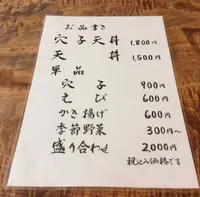 お品書き
穴子天丼 1,800円
天丼 1,500円
単品
穴子 900円
えび 600円
かき揚げ 600円
季節野菜 300円〜
盛り合わせ 2,000円
税込み価格です